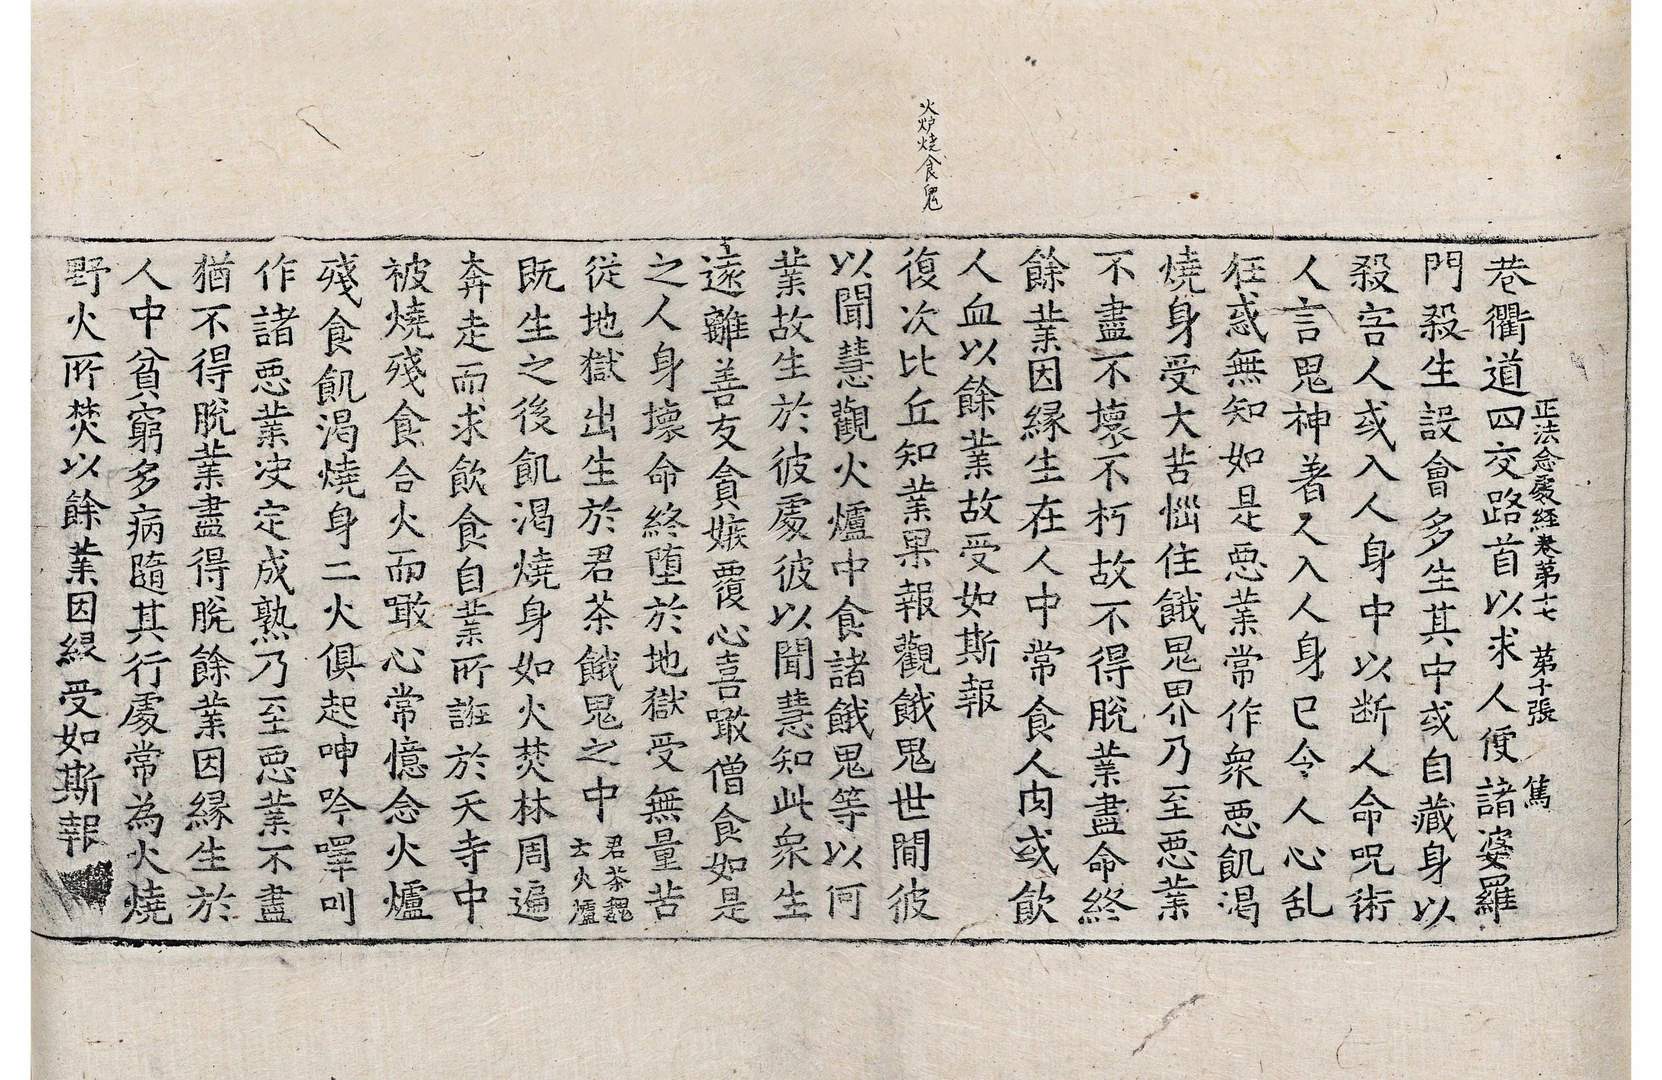 火炉燒食鬼
正法念處経卷苐十七 苐十張 篤
巷衢道四交路首以求人便諸婆羅
門殺生設會多生其中或自藏身以
殺害人或入人身中以断人命呪術
人言鬼神著又入人身已令人心乱
狂惑無知如是惡業常作衆惡飢渴
燒身受大苦惱住餓鬼界乃至惡業
不盡不壞不朽故不得脫業盡命終
餘業因緣生在人中常食人肉或飲
人血以餘業故受如斯報
復次比丘知業果報觀餓鬼世間彼
以聞慧觀火爐中食諸餓鬼等以何
業故生於彼處彼以聞慧知此衆生
遠離善友貪嫉覆心喜噉僧食如是
之人身壞命終墮於地獄受無量苦
從地獄出生於君茶餓鬼之中君茶魏云火爐
既生之後飢渴燒身如火焚林周遍
奔走而求飲食自業所誑於天寺中
被燒殘食合火而噉心常憶念火爐
殘食飢渴燒身二火俱起呻吟嘷叫
作諸惡業決定成熟乃至惡業不盡
猶不得脫業盡得脫餘業因緣生於
人中貧窮多病隨其行處常為火燒
野火所焚以餘業因緣受如斯報